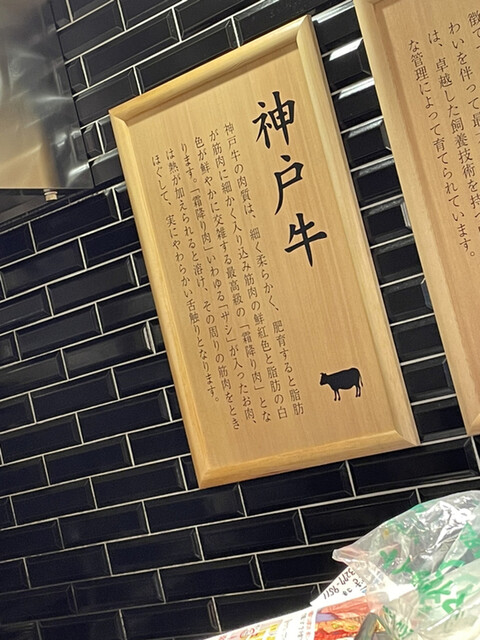 徴で、
わいを伴って最
は、卓越した飼養技術を持つ
な管理によって育てられています。
神戸牛
神戸牛の肉質は、細く柔らかく、肥育すると脂肪
が筋肉に細かく入り込み筋肉の鮮紅色と脂肪の白
色が鮮やかに交雑する最高級の「霜降り肉」とな
ります。「霜降り肉」いわゆる「サシ」が入ったお肉、
は熱が加えられると溶け、その周りの筋肉をとき
ほぐして、実にやわらかい舌触りとなります。